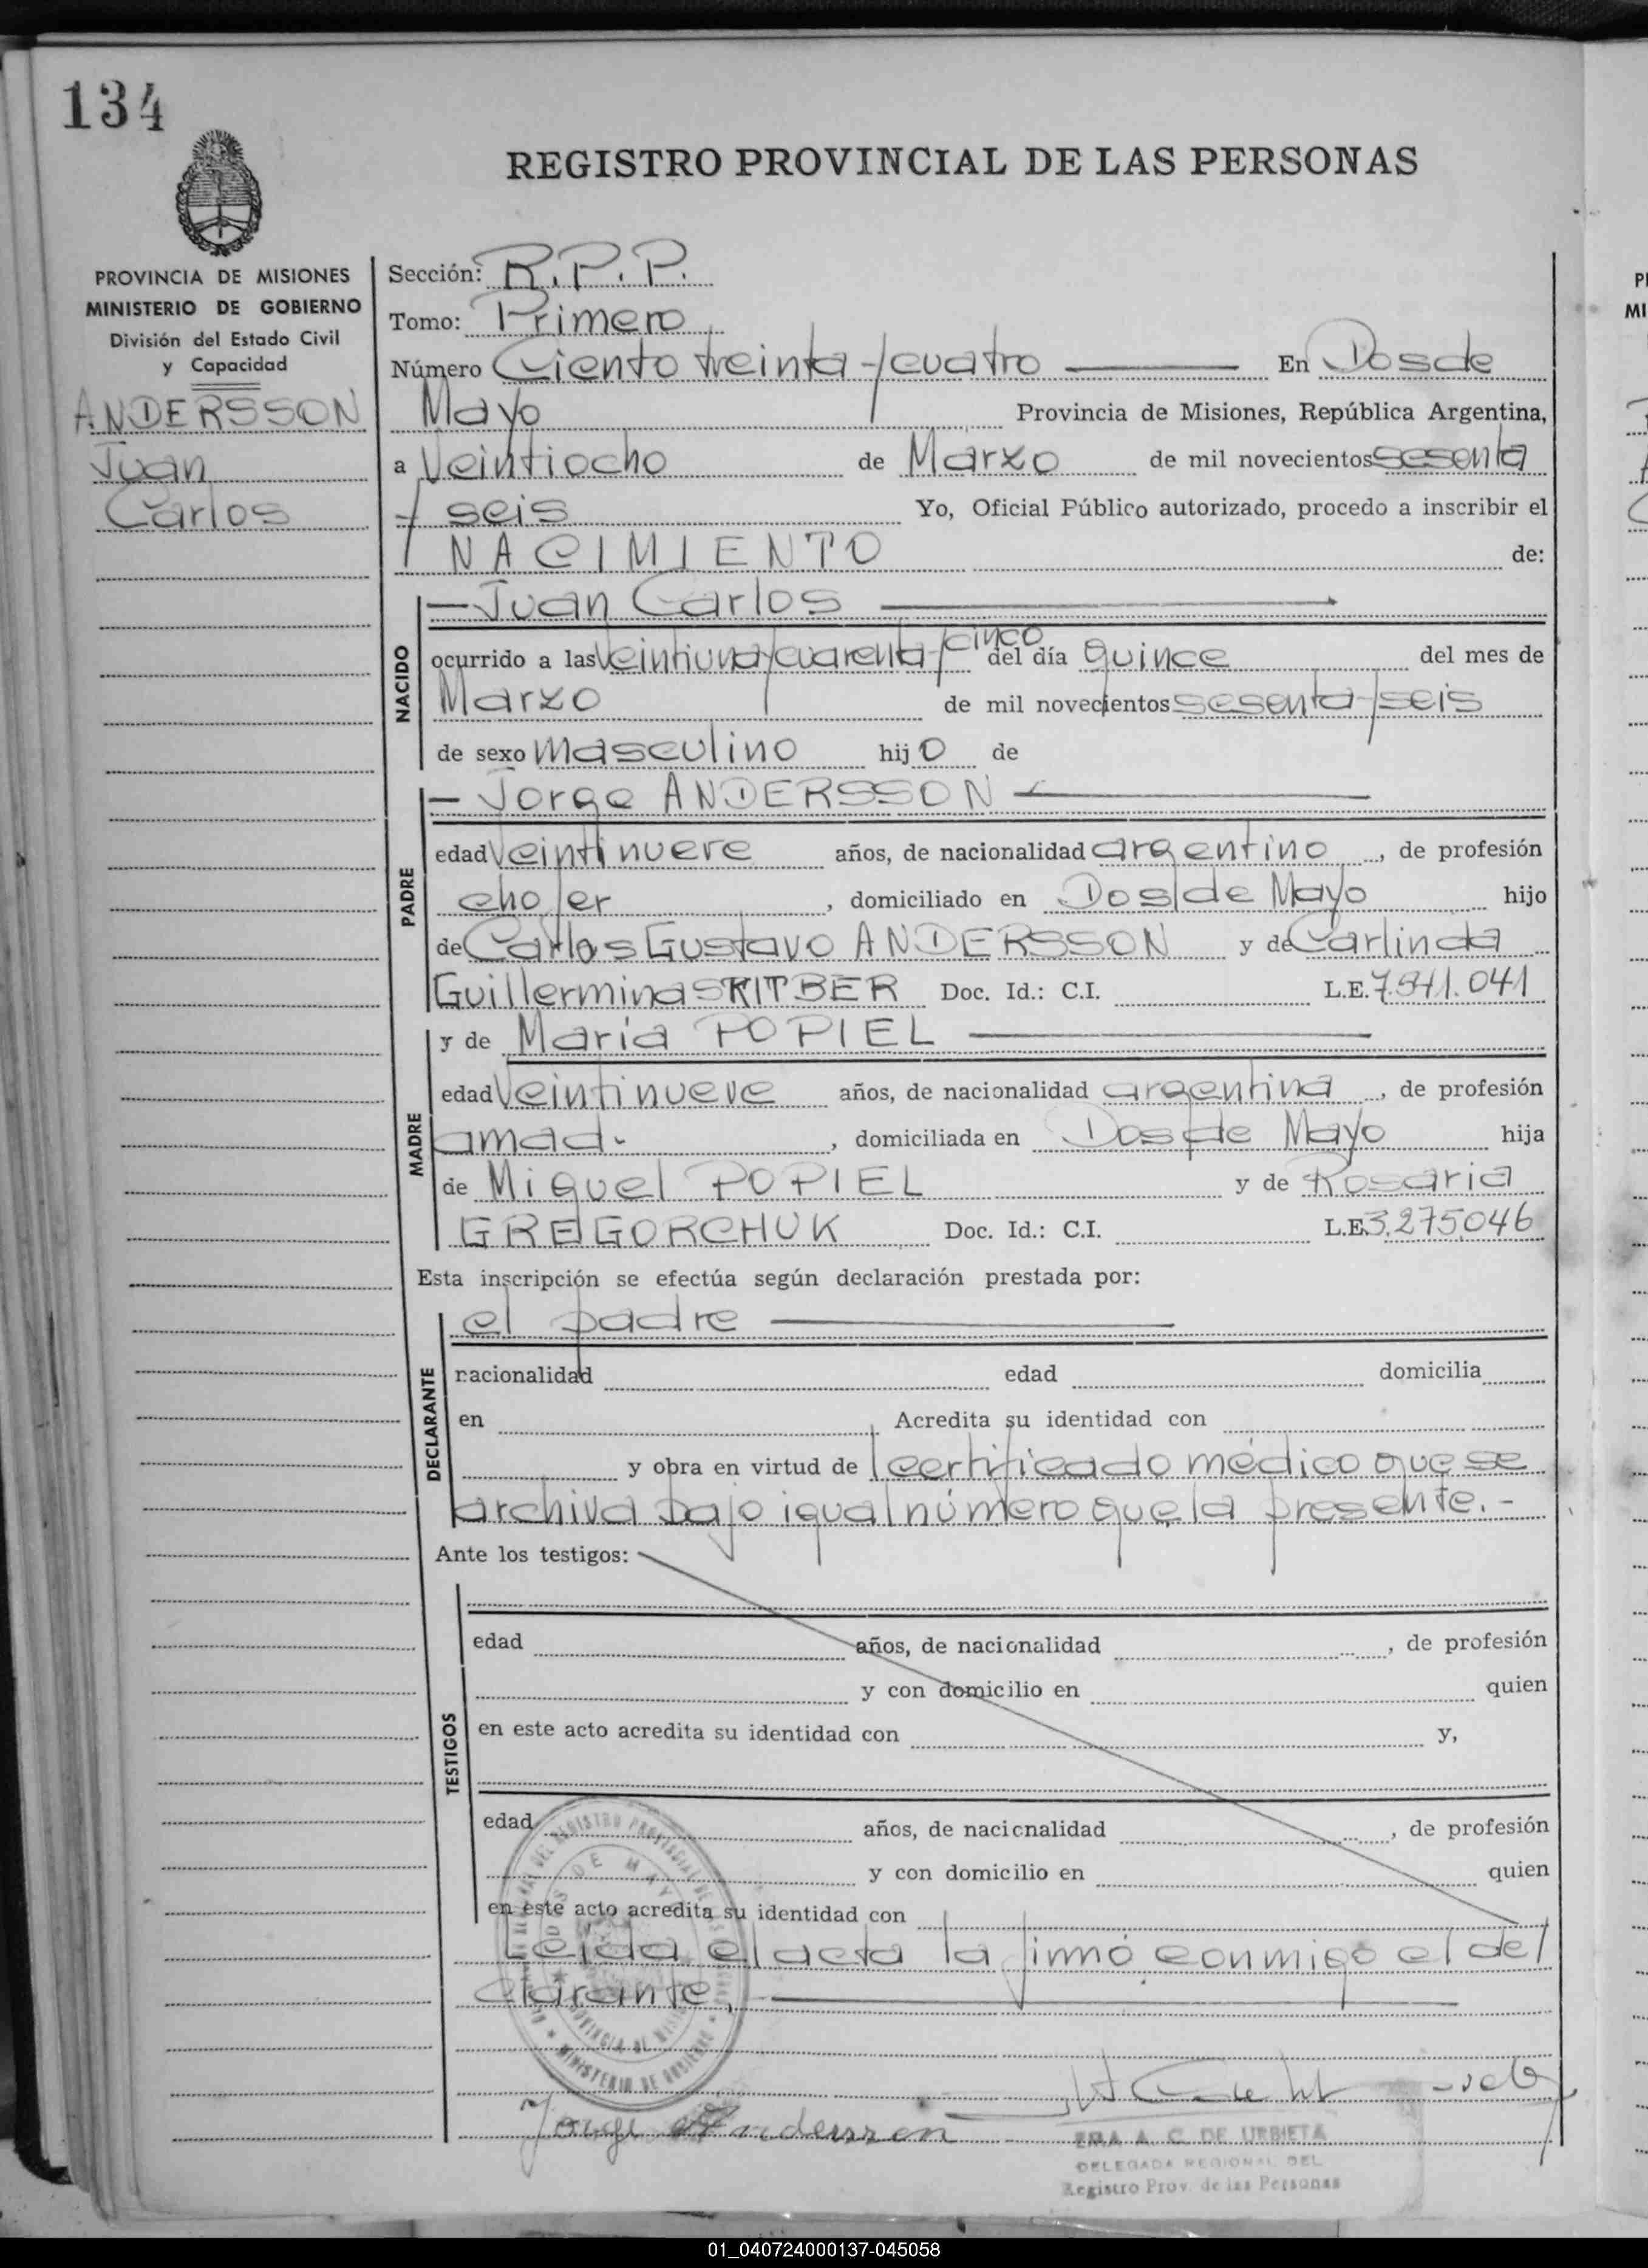 134
REGISTRO PROVINCIAL DE LAS PERSONAS
PROVINCIA DE MISIONES
MINISTERIO DE GOBIERNO
División del Estado Civil
y Capacidad
ANDERSSON
Juan
Carlos
Sección: R.P.P.
Tomo: Primero
Número Ciento treinta y cuatro En Dos de
Mayo Provincia de Misiones, República Argentina,
a Veintiocho de Marzo de mil novecientos sesenta
y seis Yo, Oficial Público autorizado, procedo a inscribir el
NACIMIENTO de:
NACIDO
— Juan Carlos —
ocurrido a las veintiuna y cuarenta y cinco del día quince del mes de
Marzo de mil novecientos sesenta y seis
de sexo masculino hijo de
PADRE
— Jorge ANDERSSON —
edad veintinueve años, de nacionalidad argentino, de profesión
chofer, domiciliado en Dos de Mayo hijo
de Carlos Gustavo ANDERSSON y de Carlinda
Guillermina Doc. Id.: C.I. L.E. 7.541.041
MADRE
y de María POPIEL —
edad veintinueve años, de nacionalidad argentina, de profesión
amad., domiciliada en Dos de Mayo hija
de Miguel POPIEL y de Rosaria
GREGORCHUK Doc. Id.: C.I. L.E. 3.275.046
Esta inscripción se efectúa según declaración prestada por:
DECLARANTE
el padre —
nacionalidad edad domicilia
en Acredita su identidad con
y obra en virtud de certificado médico que se
archiva bajo igual número que la presente.-
Ante los testigos:
TESTIGOS
edad años, de nacionalidad , de profesión
y con domicilio en quien
en este acto acredita su identidad con y,
edad años, de nacionalidad , de profesión
y con domicilio en quien
en este acto acredita su identidad con
Leída el acta la firmó conmigo el del
clarante, —
DOS DE MAYO
PROVINCIA DE MISIONES
MINISTERIO DE GOBIERNO
Jorge Anderssen
EMA A. C. DE URBIETA
DELEGADA REGIONAL DEL
Registro Prov. de las Personas
01_040724000137-045058